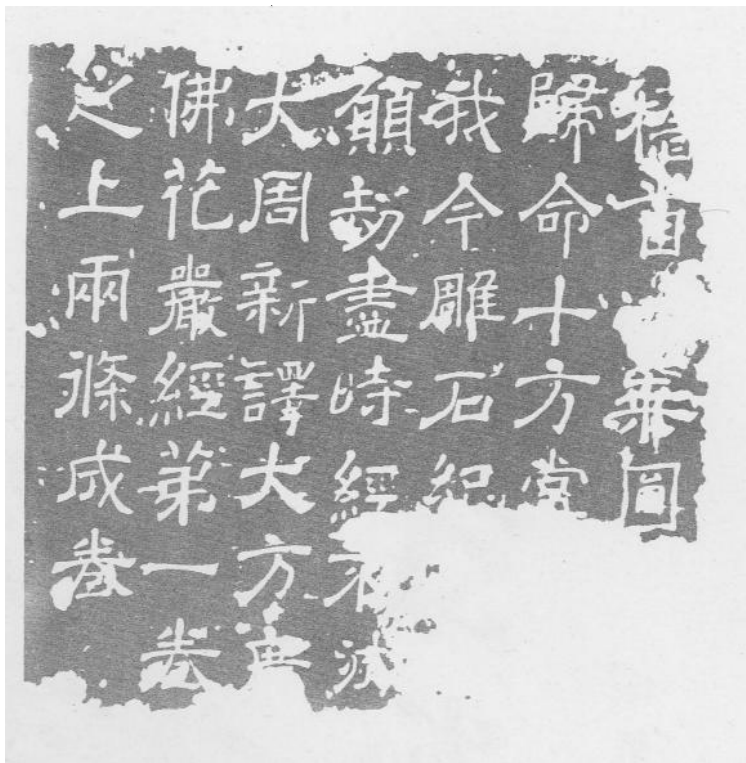 稽首
歸命十方常
我今雕石紀
願劫盡時經不滅
大周新譯大方廣
佛花嚴經第一卷
之上兩條成卷